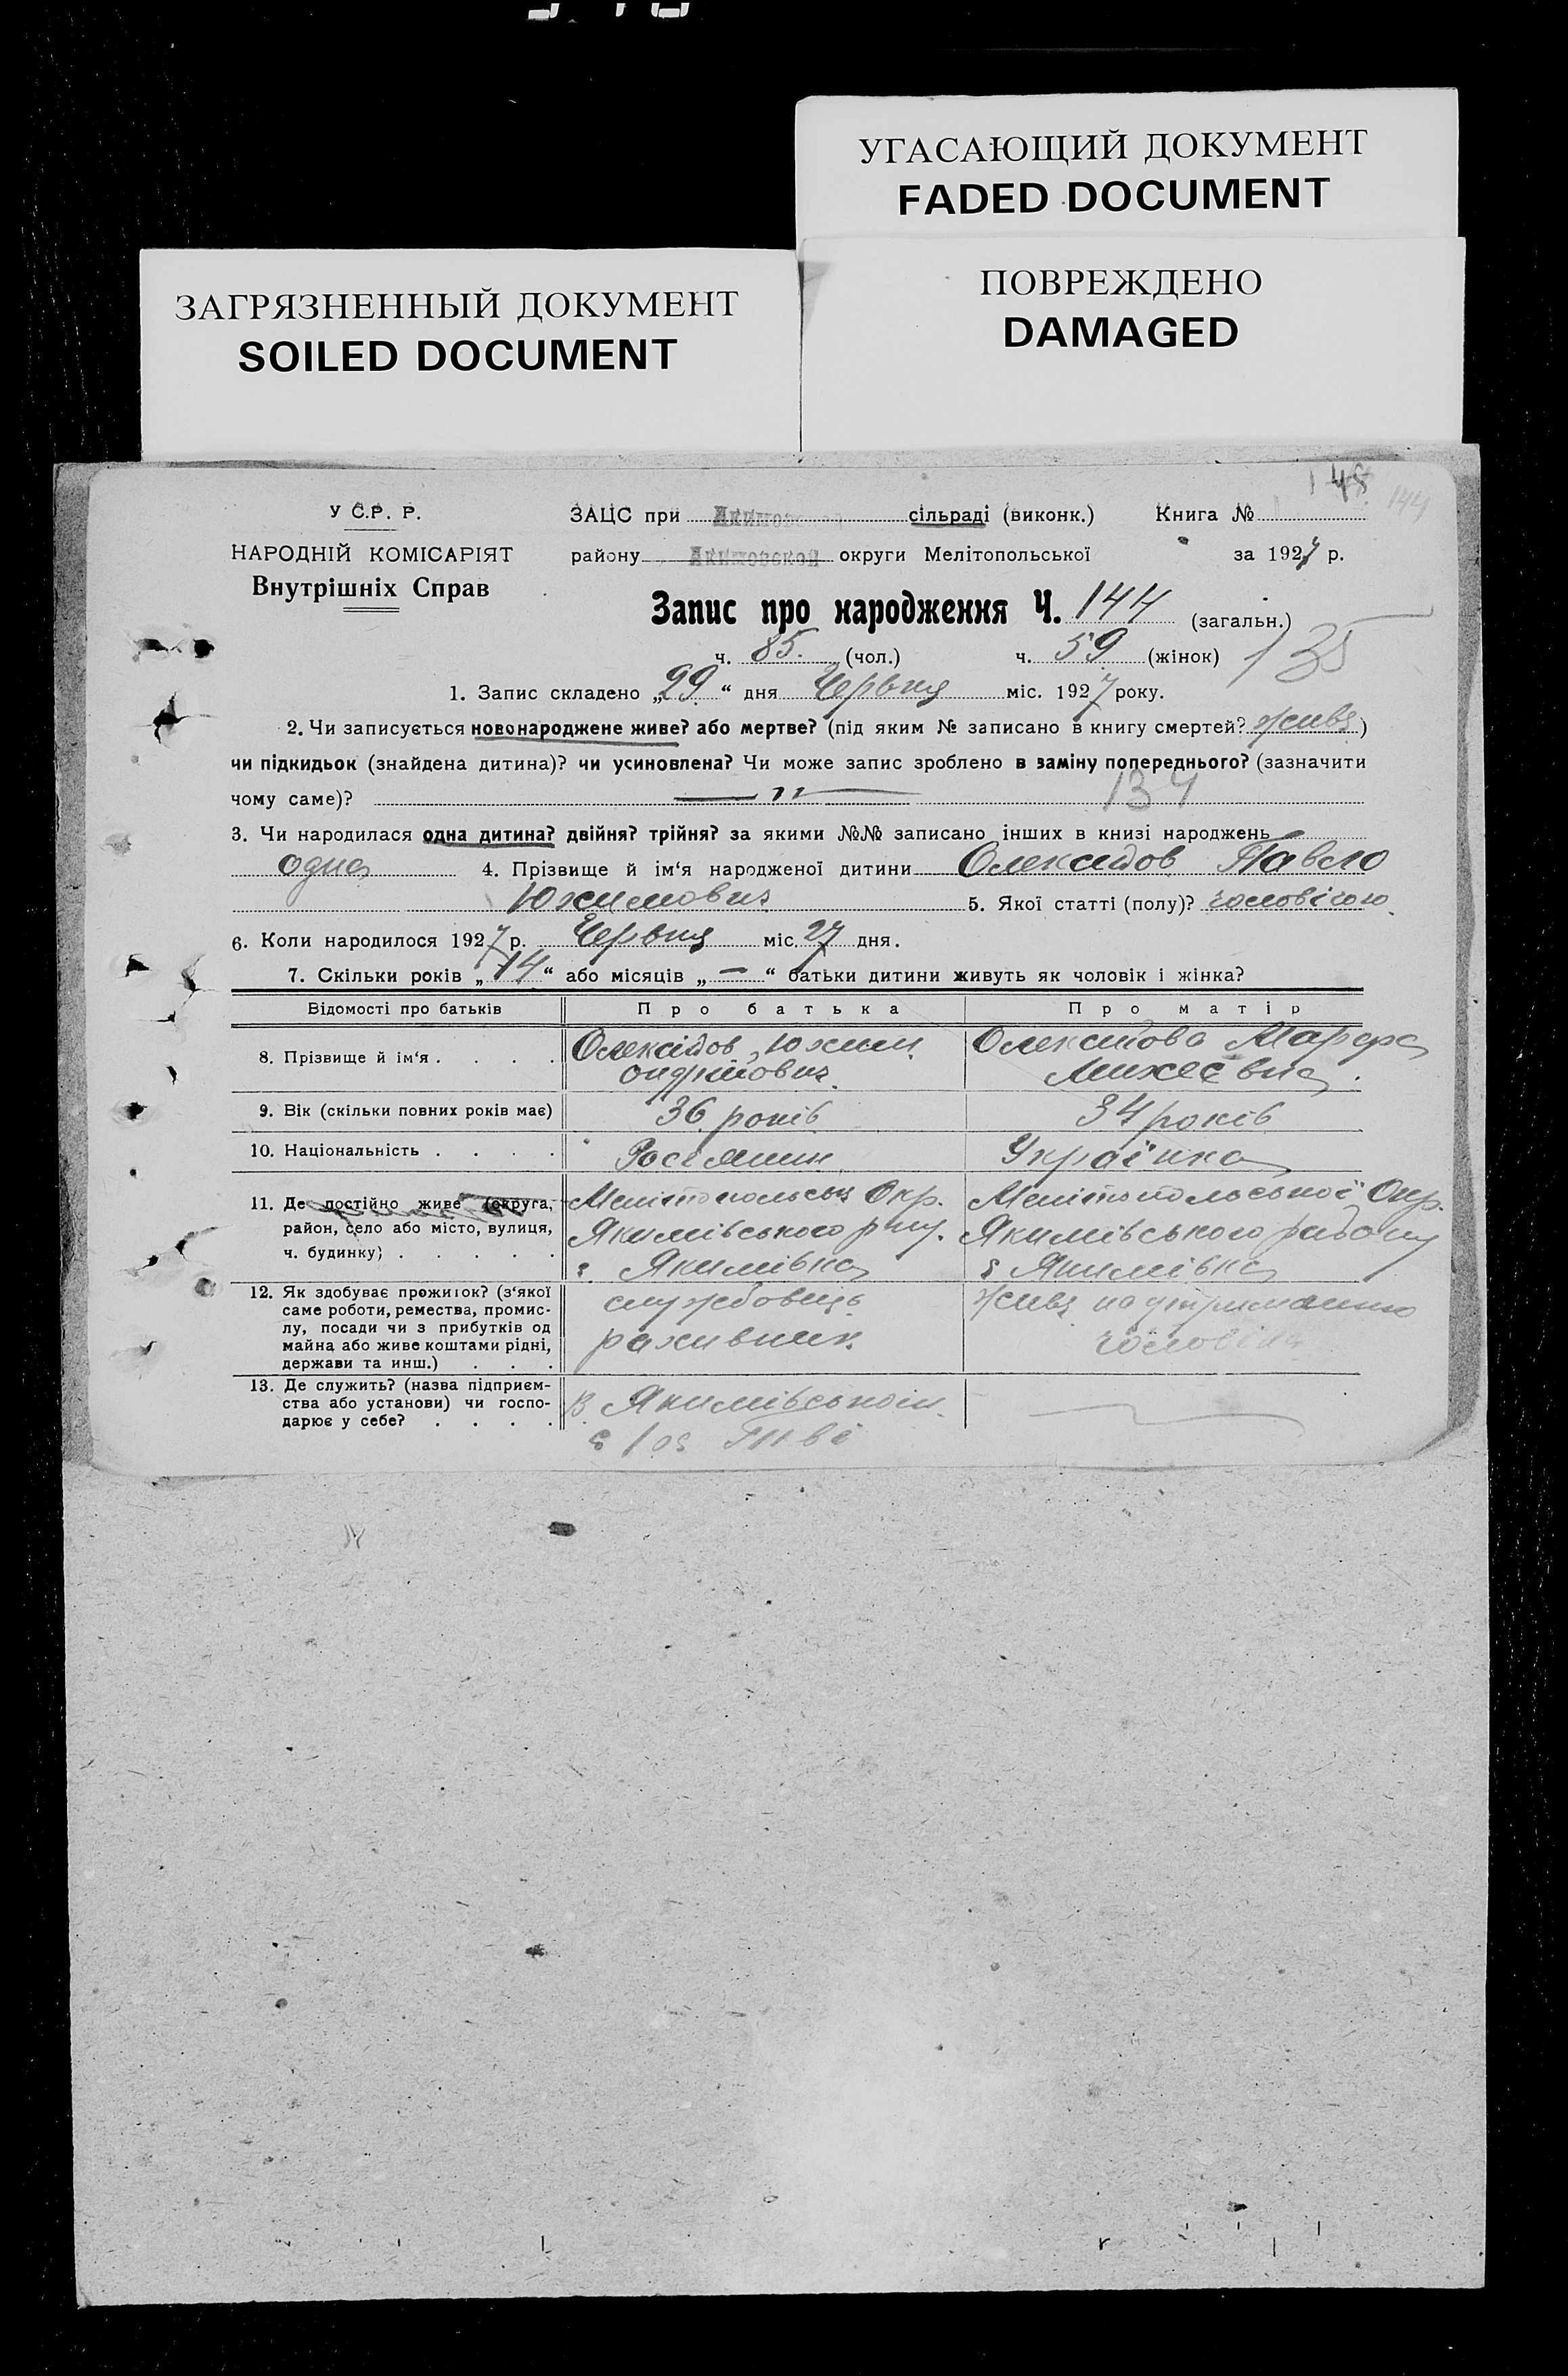 УГАСАЮЩИЙ ДОКУМЕНТ
FADED DOCUMENT
ЗАГРЯЗНЕННЫЙ ДОКУМЕНТ
SOILED DOCUMENT
ПОВРЕЖДЕНО
DAMAGED
144
У С.Р. Р.
НАРОДНІЙ КОМІСАРІЯТ
Внутрішніх Справ
ЗАЦС при сільраді (виконк.) Книга №
району Акимовской округи Мелітопольської за 1927 р.
Запис про народження Ч. 144 (загальн.)
ч. 85. (чол.) ч. 59 (жінок) 135
1. Запис складено „29“ дня Червня міс. 1927 року.
2. Чи записується новонароджене живе? або мертве? (під яким № записано в книгу смертей? живе)
чи підкидьок (знайдена дитина)? чи усиновлена? Чи може запис зроблено в заміну попереднього? (зазначити
чому саме)? — " — 134
3. Чи народилася одна дитина? двійня? трійня? за якими №№ записано інших в книзі народжень —
одна 4. Прізвище й ім‘я народженої дитини Олексідов Павло
Юхимович 5. Якої статті (полу)?
6. Коли народилося 1927 р. Червня міс. 27 дня.
7. Скільки років „14“ або місяців „—“ батьки дитини живуть як чоловік і жінка?
Відомості про батьків Про батька Про матір
8. Прізвище й ім‘я . . . . Олексідов Юхим Олексідова Марфа
Михеєвна.
9. Вік (скільки повних років має) 36 років 34 років
10. Національність . . . . Росіянин Українка
11. Де постійно живе (округа, Окр. Мелітопольської Окр.
район, село або місто, вулиця, Якимівського рну. Якимівського району
ч. будинку) . . . . . с. Якимівка с. Якимівка
12. Як здобуває прожиток? (з‘якої службовець живе на утриманню
саме роботи, ремества, промис-
лу, посади чи з прибутків од рахивник.
майна або живе коштами рідні, чоловіка
держави та инш.) . . .
13. Де служить? (назва підприєм-
ства або установи) чи госпо- В. Якимівськом
дарює у себе? . . . .